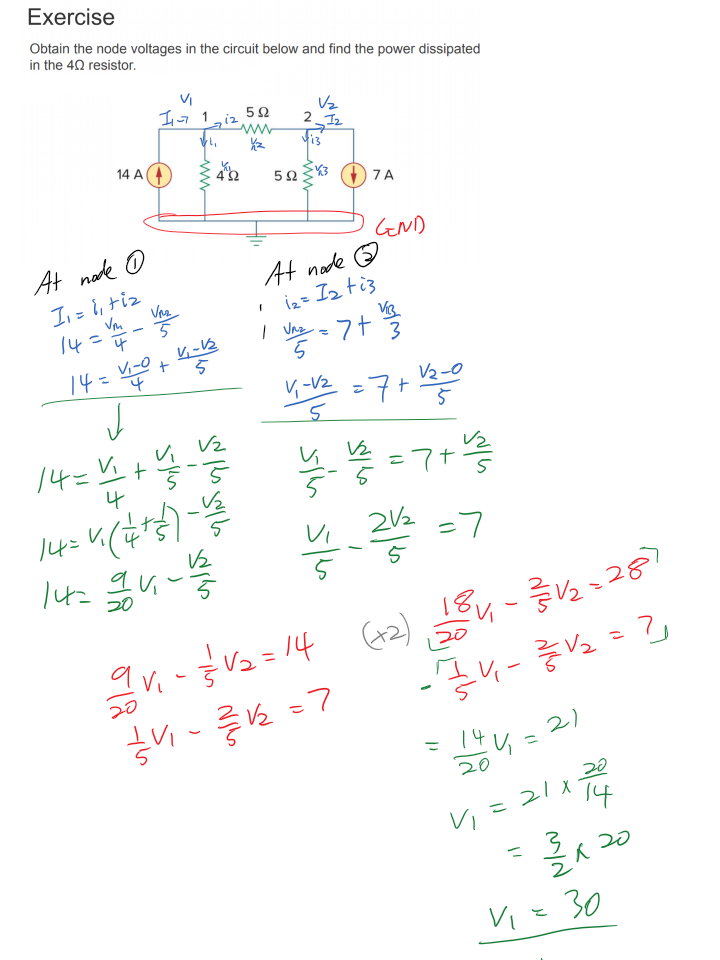 Exercise
Obtain the node voltages in the circuit below and find the power dissipated
in the 4Ω resistor.
V₁
V₂
I₁→ 1 i2 5 Ω 2 I2
i₁ VR2 i3
14 A VR1 4 Ω 5 Ω VR3 7 A
GND
At node ①
I₁ = i₁ + i2
14 = VR1/4 - VR2/5
14 = (V₁-0)/4 + (V₁-V2)/5
At node ②
i2 = I2 + i3
VR2/5 = 7 + VR3/3
(V₁-V2)/5 = 7 + (V2-0)/5
14 = V₁/4 + V₁/5 - V2/5
14 = V₁(1/4 + 1/5) - V2/5
14 = 9/20 V₁ - V2/5
V₁/5 - V2/5 = 7 + V2/5
V₁/5 - 2V2/5 = 7
9/20 V₁ - 1/5 V2 = 14
1/5 V₁ - 2/5 V2 = 7
(×2) [18/20 V₁ - 2/5 V2 = 28]
- [1/5 V₁ - 2/5 V2 = 7]
= 14/20 V₁ = 21
V₁ = 21 × 20/14
= 3/2 × 20
V₁ = 30